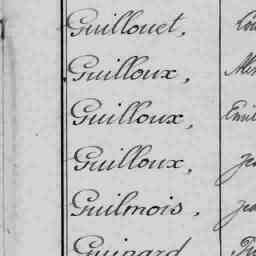 Guillouet,
Guilloux, Ale
Guilloux, Emil
Guilloux, Je
Guilmois, Jea
Guinard